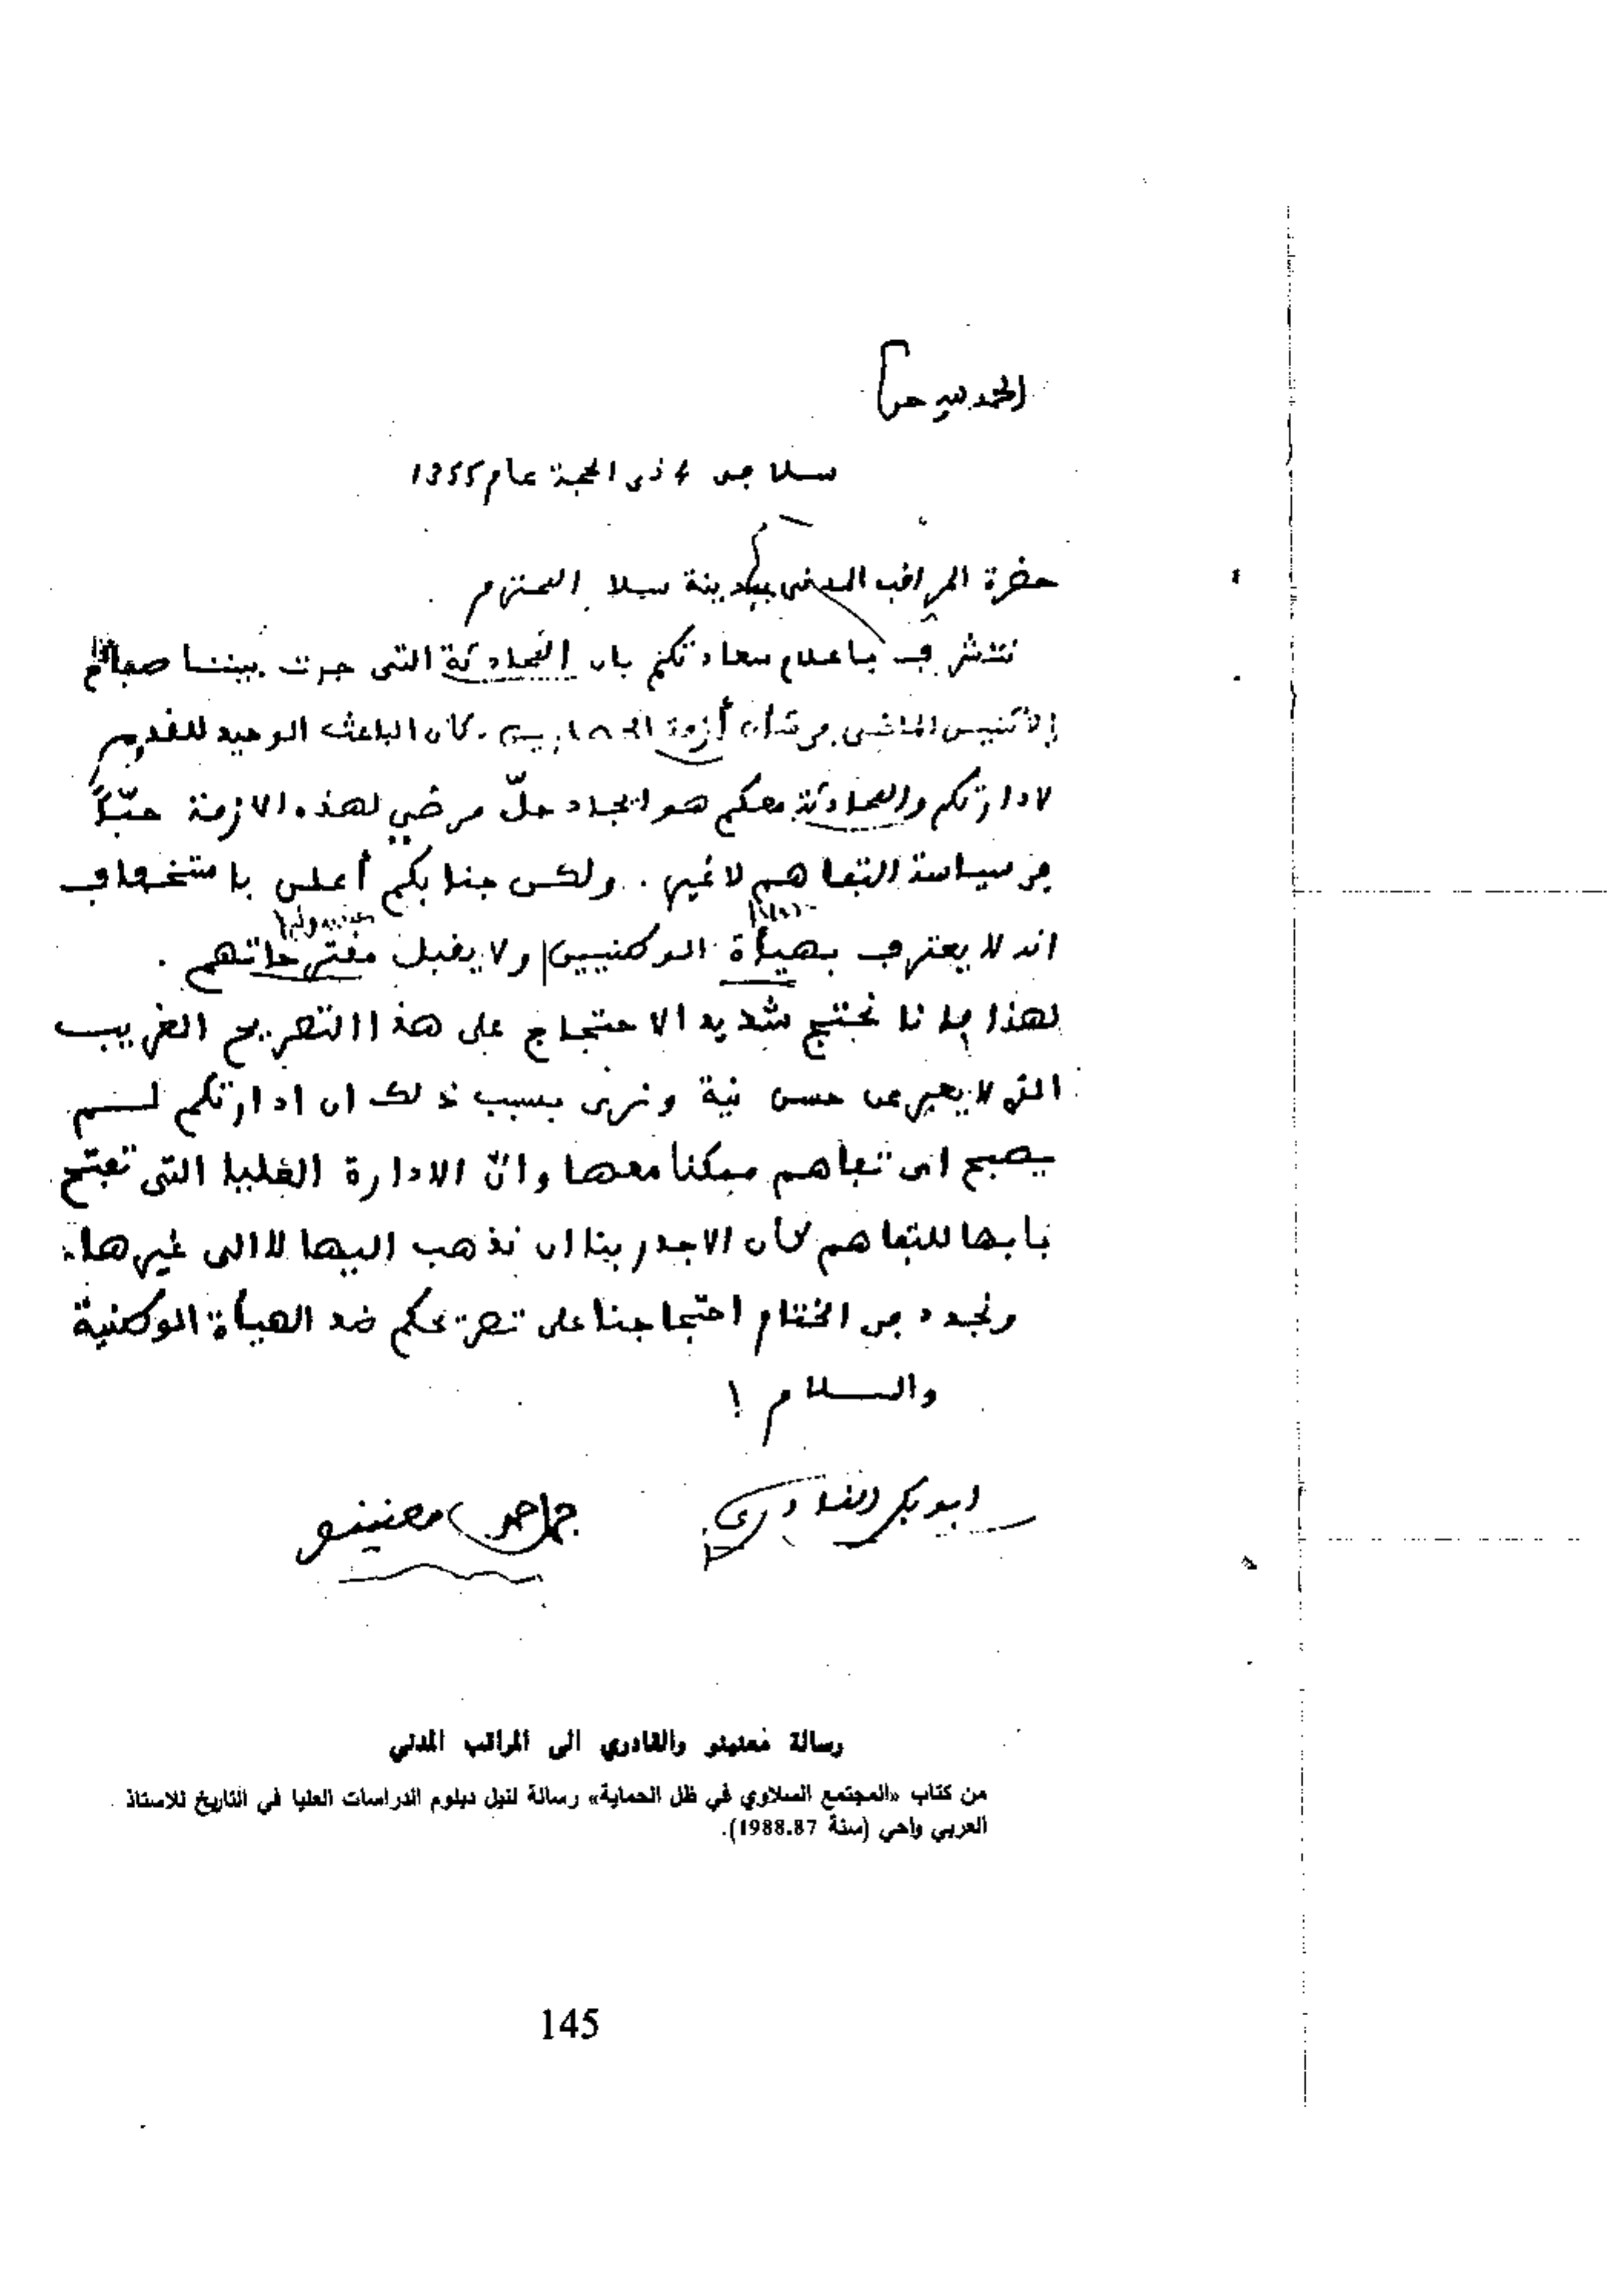 الحمد لله حق
سلا في 4 ذي الحجة عام 1355
حضرة المراقب المدني بمدينة سلا المحترم
نتشرف باعلام سعادتكم بان المحادثة التي جرت بيننا صباح
الاثنين الماضي في شأن أزمة كان الباعث الوحيد للقدوم
لادارتكم والمحادثة معكم هو ايجاد حلّ مرضي لهذه الازمة حبّاً
في سياسة التفاهم لا غير. ولكن جنابكم أعلن باستخفاف
انه لا يعترف بهيأة الوطنيين ولا يقبل مقترحاتهم.
لهذا فاننا نحتج شديد الاحتجاج على هذا التصريح الغريب
الذي لا يعبر عن حسن نية ونرى بسبب ذلك ان ادارتكم لم
يصبح اي تفاهم ممكنا معها وانّ الادارة العليا التي تفتح
بابها للتفاهم كان الاجدر بنا ان نذهب اليها لا الى غيرها.
ونجدد في الختام احتجاجنا على تصريحكم ضد الهيأة الوطنية
والسلام !
ابو بكر القادري
معنينو
رسالة معنينو والقادري الى المراقب المدني
من كتاب «المجتمع السلاوي في ظل الحماية» رسالة لنيل دبلوم الدراسات العليا في التاريخ للاستاذ
العربي واحي (سنة 1988.87).
145